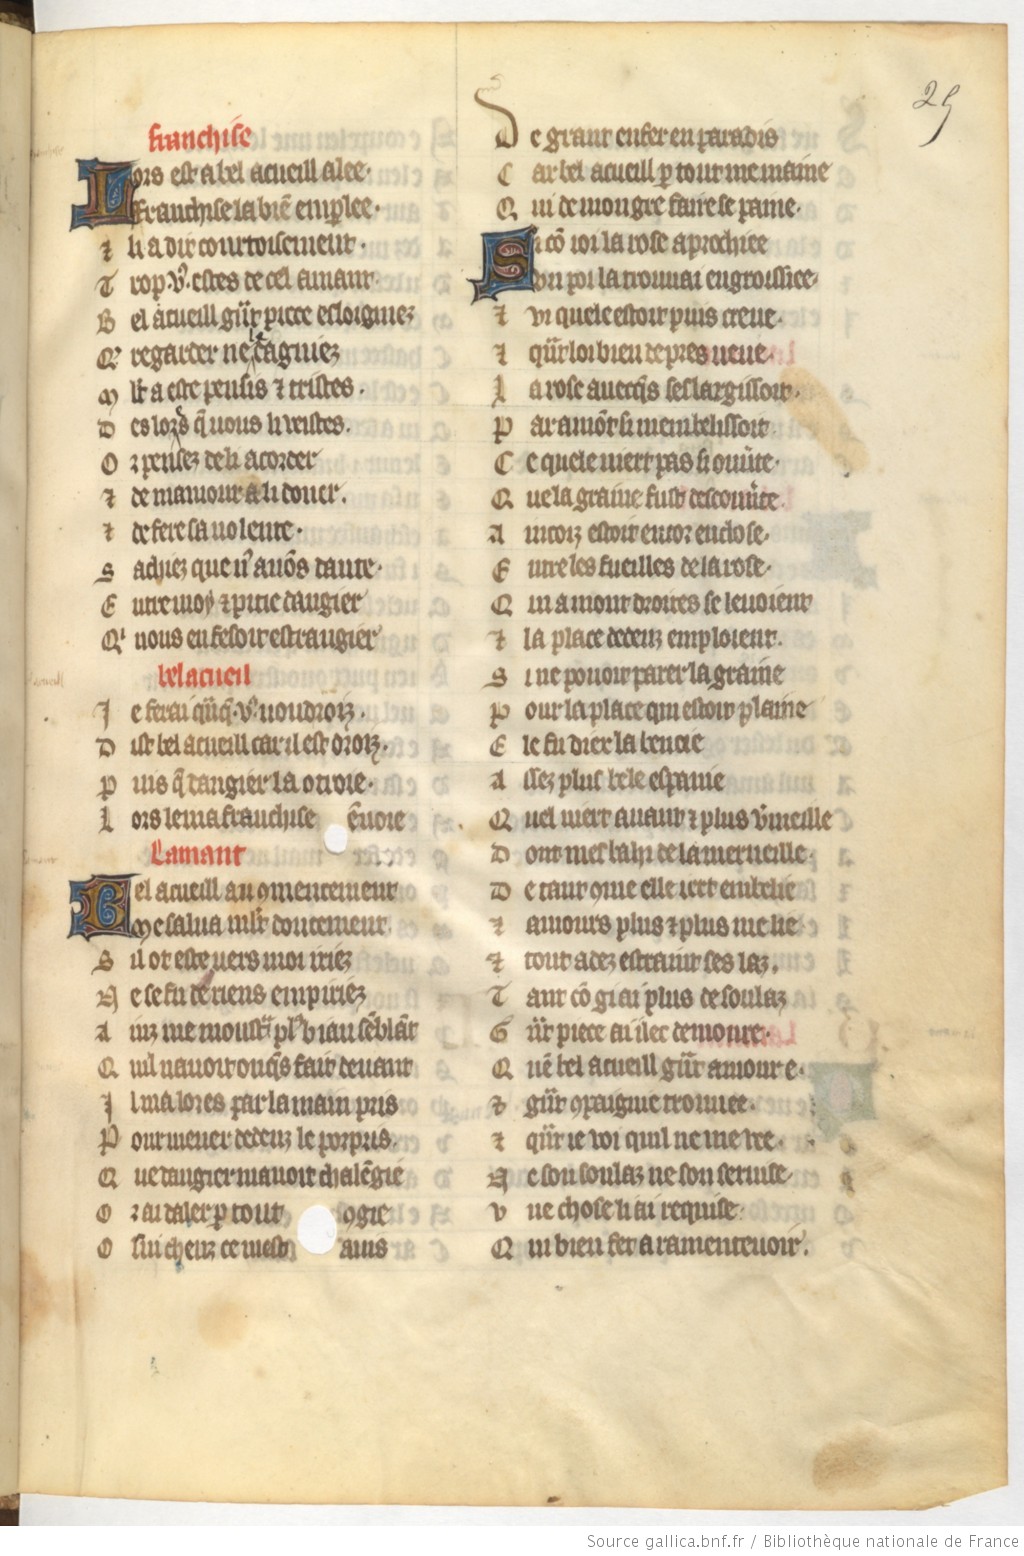 25
franchise
Lors est a bel acueill alee.
Franchise la biē emplee.
⁊ li a dit courtoisement.
Trop .v᷒. estes de cel amant
Bel acueill gñt piece esloigniez
Q̾ regarder ne le dagniez
Mlt a este pensis ⁊ tristes.
Des lors q̄ vous li veistes.
Or pensez de li acorder
⁊ de mamour a li doner.
⁊ de fere sa volente.
Sachiez que n᷒ auōs dante.
Entre moy ⁊ pitie dangier
Qi nous en fesoit estrangier
bel acueil
Je ferai q̄nq̄ .v᷒. voudroiz.
Dist bel acueill car il est droiz.
Puis q̄ dangier la otroie.
Lors le ma franchise ēuoie
Lamant
Bel acueill au ꝯmencement
Me salua mlt doucement
Sil ot este uers moi iriez
Ne se fu de riens empiriez
Ainz me moustᵃ pl᷒ biau sēblāt
Quil nauoit onq̄s fait deuant
Il ma lores par la main pris
Pour mener dedenz le porpris.
Que dangier mauoit chalēgie
Or ai daler ꝑ tout ꝯgie
Or sui cheuz ce mest auis
De grant enfer en paradis
Car bel acueill ꝑ tout me maine
Qui de mon gre faire se paine.
Si cō ioi la rose aprochiee
Son poi la trouuai engroissiee.
⁊ vi quele estoit puis creue.
⁊ q̄nt loi bien de pres ueue.
La rose auecq̄s seslargissoit.
Par amōt si membelissoit
Ce quele niert pas si ouū̾te.
Que la graine fust descouū̾te.
Aincoiz estoit encor enclose.
Entre les fueilles de la rose.
Qui amont droites se leuoient
⁊ la place dedenz emploient.
Si ne pouoit parer la graine
Pour la place qui estoit plaine
Ele fu dieu la beneie
Assez plus bele espanie
Quel niert auant ⁊ plus v̾meille
Dont mesbahi de la merueille.
De tant ꝯme elle iert embelie
⁊ amours plus ⁊ plus me lie
⁊ tout adez estraint ses laz.
Tant cō giai plus de soulaz
Gñt piece ai ilec demoure.
Quē bel acueill gñt amour e.
⁊ gñt ꝯpaignie trouuee.
⁊ q̄nt ie voi quil ne me vee.
Ne son soulaz ne son seruise.
Vne chose li ai requise
Qui bien fet a ramenteuoir.
Source gallica.bnf.fr / Bibliothèque nationale de France